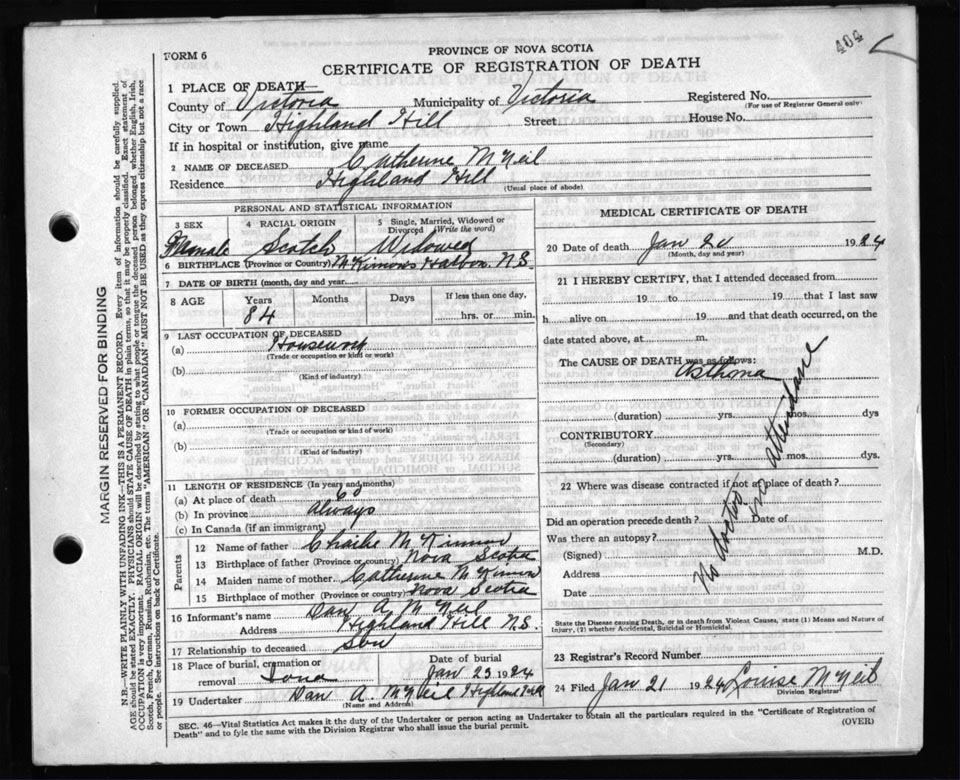 404
FORM 6
PROVINCE OF NOVA SCOTIA
CERTIFICATE OF REGISTRATION OF DEATH
1 PLACE OF DEATH
County of Victoria Municipality of Victoria Registered No.
(For use of Registrar General only)
City or Town Highland Hill Street House No.
If in hospital or institution, give name
2 NAME OF DECEASED Catherine McNeil
Residence Highland Hill
(Usual place of abode)
PERSONAL AND STATISTICAL INFORMATION
3 SEX 4 RACIAL ORIGIN 5 Single, Married, Widowed or Divorced (Write the Word)
Female Scotch Widowed
6 BIRTHPLACE (Province or Country) McKinnons Harbor N.S.
7 DATE OF BIRTH (month, day and year)
8 AGE Years Months Days If less than one day,
84 hrs. or min.
9 LAST OCCUPATION OF DECEASED
(a) Housework
(Trade or occupation or kind or work)
(b)
(Kind of industry)
10 FORMER OCCUPATION OF DECEASED
(a)
(Trade or occupation or kind of work)
(b)
(Kind of industry)
11 LENGTH OF RESIDENCE (In years and months)
(a) At place of death 60
(b) In province always
(c) In Canada (if an immigrant)
Parents
12 Name of father Charlie McKinnon
13 Birthplace of father (Province or country) Nova Scotia
14 Maiden name of mother Catherine McKinnon
15 Birthplace of mother (Province or country) Nova Scotia
16 Informant's name Dan A. McNeil
Address Highland Hill N.S.
17 Relationship to deceased son
18 Place of burial, cremation or removal Iona Date of burial Jan 23 1924
19 Undertaker Dan A. McNeil Highland Hill
(Name and Address)
MEDICAL CERTIFICATE OF DEATH
20 Date of death Jan 20 1924
(Month, day and year)
21 I HEREBY CERTIFY, that I attended deceased from
19 to 19 that I last saw
h alive on 19 and that death occurred, on the
date stated above, at m.
The CAUSE OF DEATH was as follows:
Asthma
(duration) yrs. mos. dys
CONTRIBUTORY
(Secondary)
(duration) yrs. mos. dys.
22 Where was disease contracted if not at place of death?
Did an operation precede death? Date of
Was there an autopsy?
(Signed) M.D.
Address
Date
No doctor in attendance
State the Disease causing Death, or in death from Violent Causes, state (1) Means and Nature of
Injury, (2) whether Accidental, Suicidal or Homicidal.
23 Registrar's Record Number
24 Filed Jan 21 1924 Louise McNeil
Division Registrar
SEC. 46—Vital Statistics Act makes it the duty of the Undertaker or person acting as Undertaker to obtain all the particulars required in the "Certificate of Registration of
Death" and to fyle the same with the Division Registrar who shall issue the burial permit. (OVER)
MARGIN RESERVED FOR BINDING
N.B.—WRITE PLAINLY WITH UNFADING INK—THIS IS A PERMANENT RECORD. Every item of information should be carefully supplied.
AGE should be stated EXACTLY. PHYSICIANS should STATE CAUSE OF DEATH in plain terms, so that it may be properly classified. Exact statement of
OCCUPATION is very important. RACIAL ORIGIN will be described by stating to what people or tongue the deceased person belonged whether English, Irish,
Scotch, French, German, Russian, Ruthenian, etc. The terms "AMERICAN" OR "CANADIAN" MUST NOT BE USED as they express citizenship but not a race
or people. See instructions on back of Certificate.